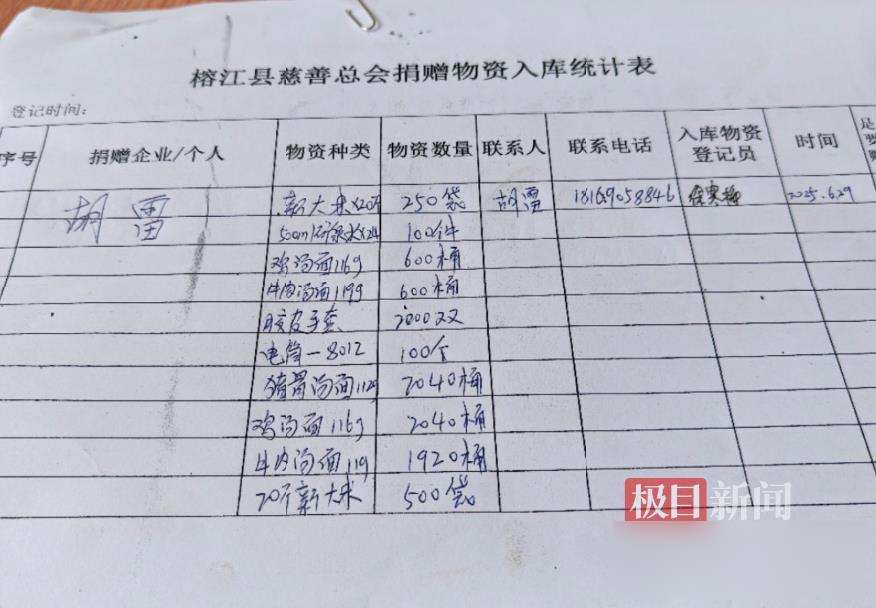 榕江县慈善总会捐赠物资入库统计表
登记时间:
序号 捐赠企业/个人 物资种类 物资数量 联系人 联系电话 入库物资登记员 时间 是
胡雷 新大米x20斤 250袋 胡雷 18169058846 2025.6.29
100件
鸡汤面116g 600桶
牛肉汤面119g 600桶
胶皮手套 2000双
电筒-8012 100个
猪骨汤面112g 2040桶
鸡汤面116g 2040桶
牛肉汤面119 1920桶
20斤新大米 500袋
极目新闻